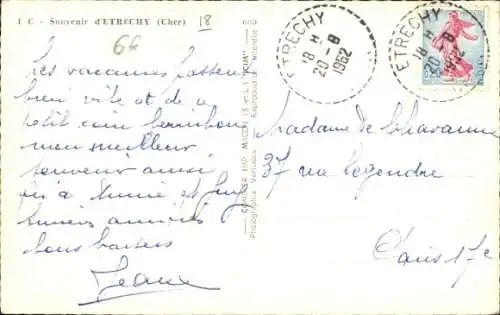 1 C - Souvenir d'ETRECHY (Cher)
18
66
Les vacances passent
bien vite et de ce
petit coin berrichon
mon meilleur
souvenir ainsi
amitiés
bons baisers
Jeanne
COMBIER IMP. MACON (S.-et-L.) "CIM"
Photographie Véritable - Reproduction Interdite
ETRECHY
18 H
20 - 8
1962
ETRECHY
18 H
20 - 8
1962
Madame de Chavanne
37 rue Legendre
Paris 17e